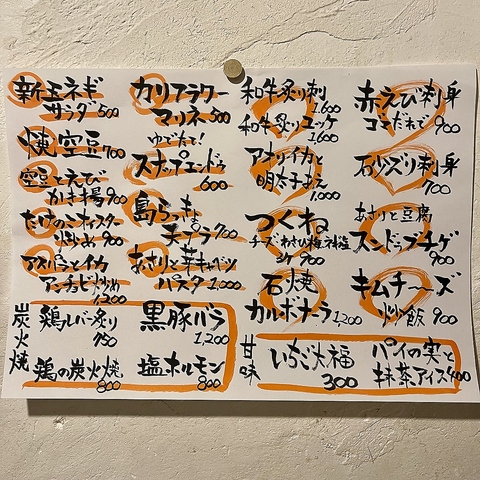 新玉ネギ
サラダ 500
燻空豆 700
空豆とえび
かき揚 900
たけのこオイスター
炒め 900
アスパラとイカ
アンチョビ炒め
1,200
カリフラワー
マリネ 500
ゆでたて!
スナップエンドウ
600
島らっきょ
天プラ 700
あさりと芽キャベツ
パスタ 1,000
和牛炙り刺
1,600
和牛炙りユッケ
1,600
アオリイカと
明太子よ
1,000
つくね
チーズ・わさび・梅・ネギ塩
各 900
石焼
カルボナーラ 1,200
赤えび刺身
ゴマだれで 900
石ガレイ刺身
700
あさりと豆腐
スンドゥブチゲ
900
キムチーズ
炒飯 900
炭火焼
鶏ルバー炙り
750
黒豚バラ
1,200
鶏の炭火焼
800
塩ホルモン
800
甘味
いちご大福
300
パイの実と
抹茶アイス 400